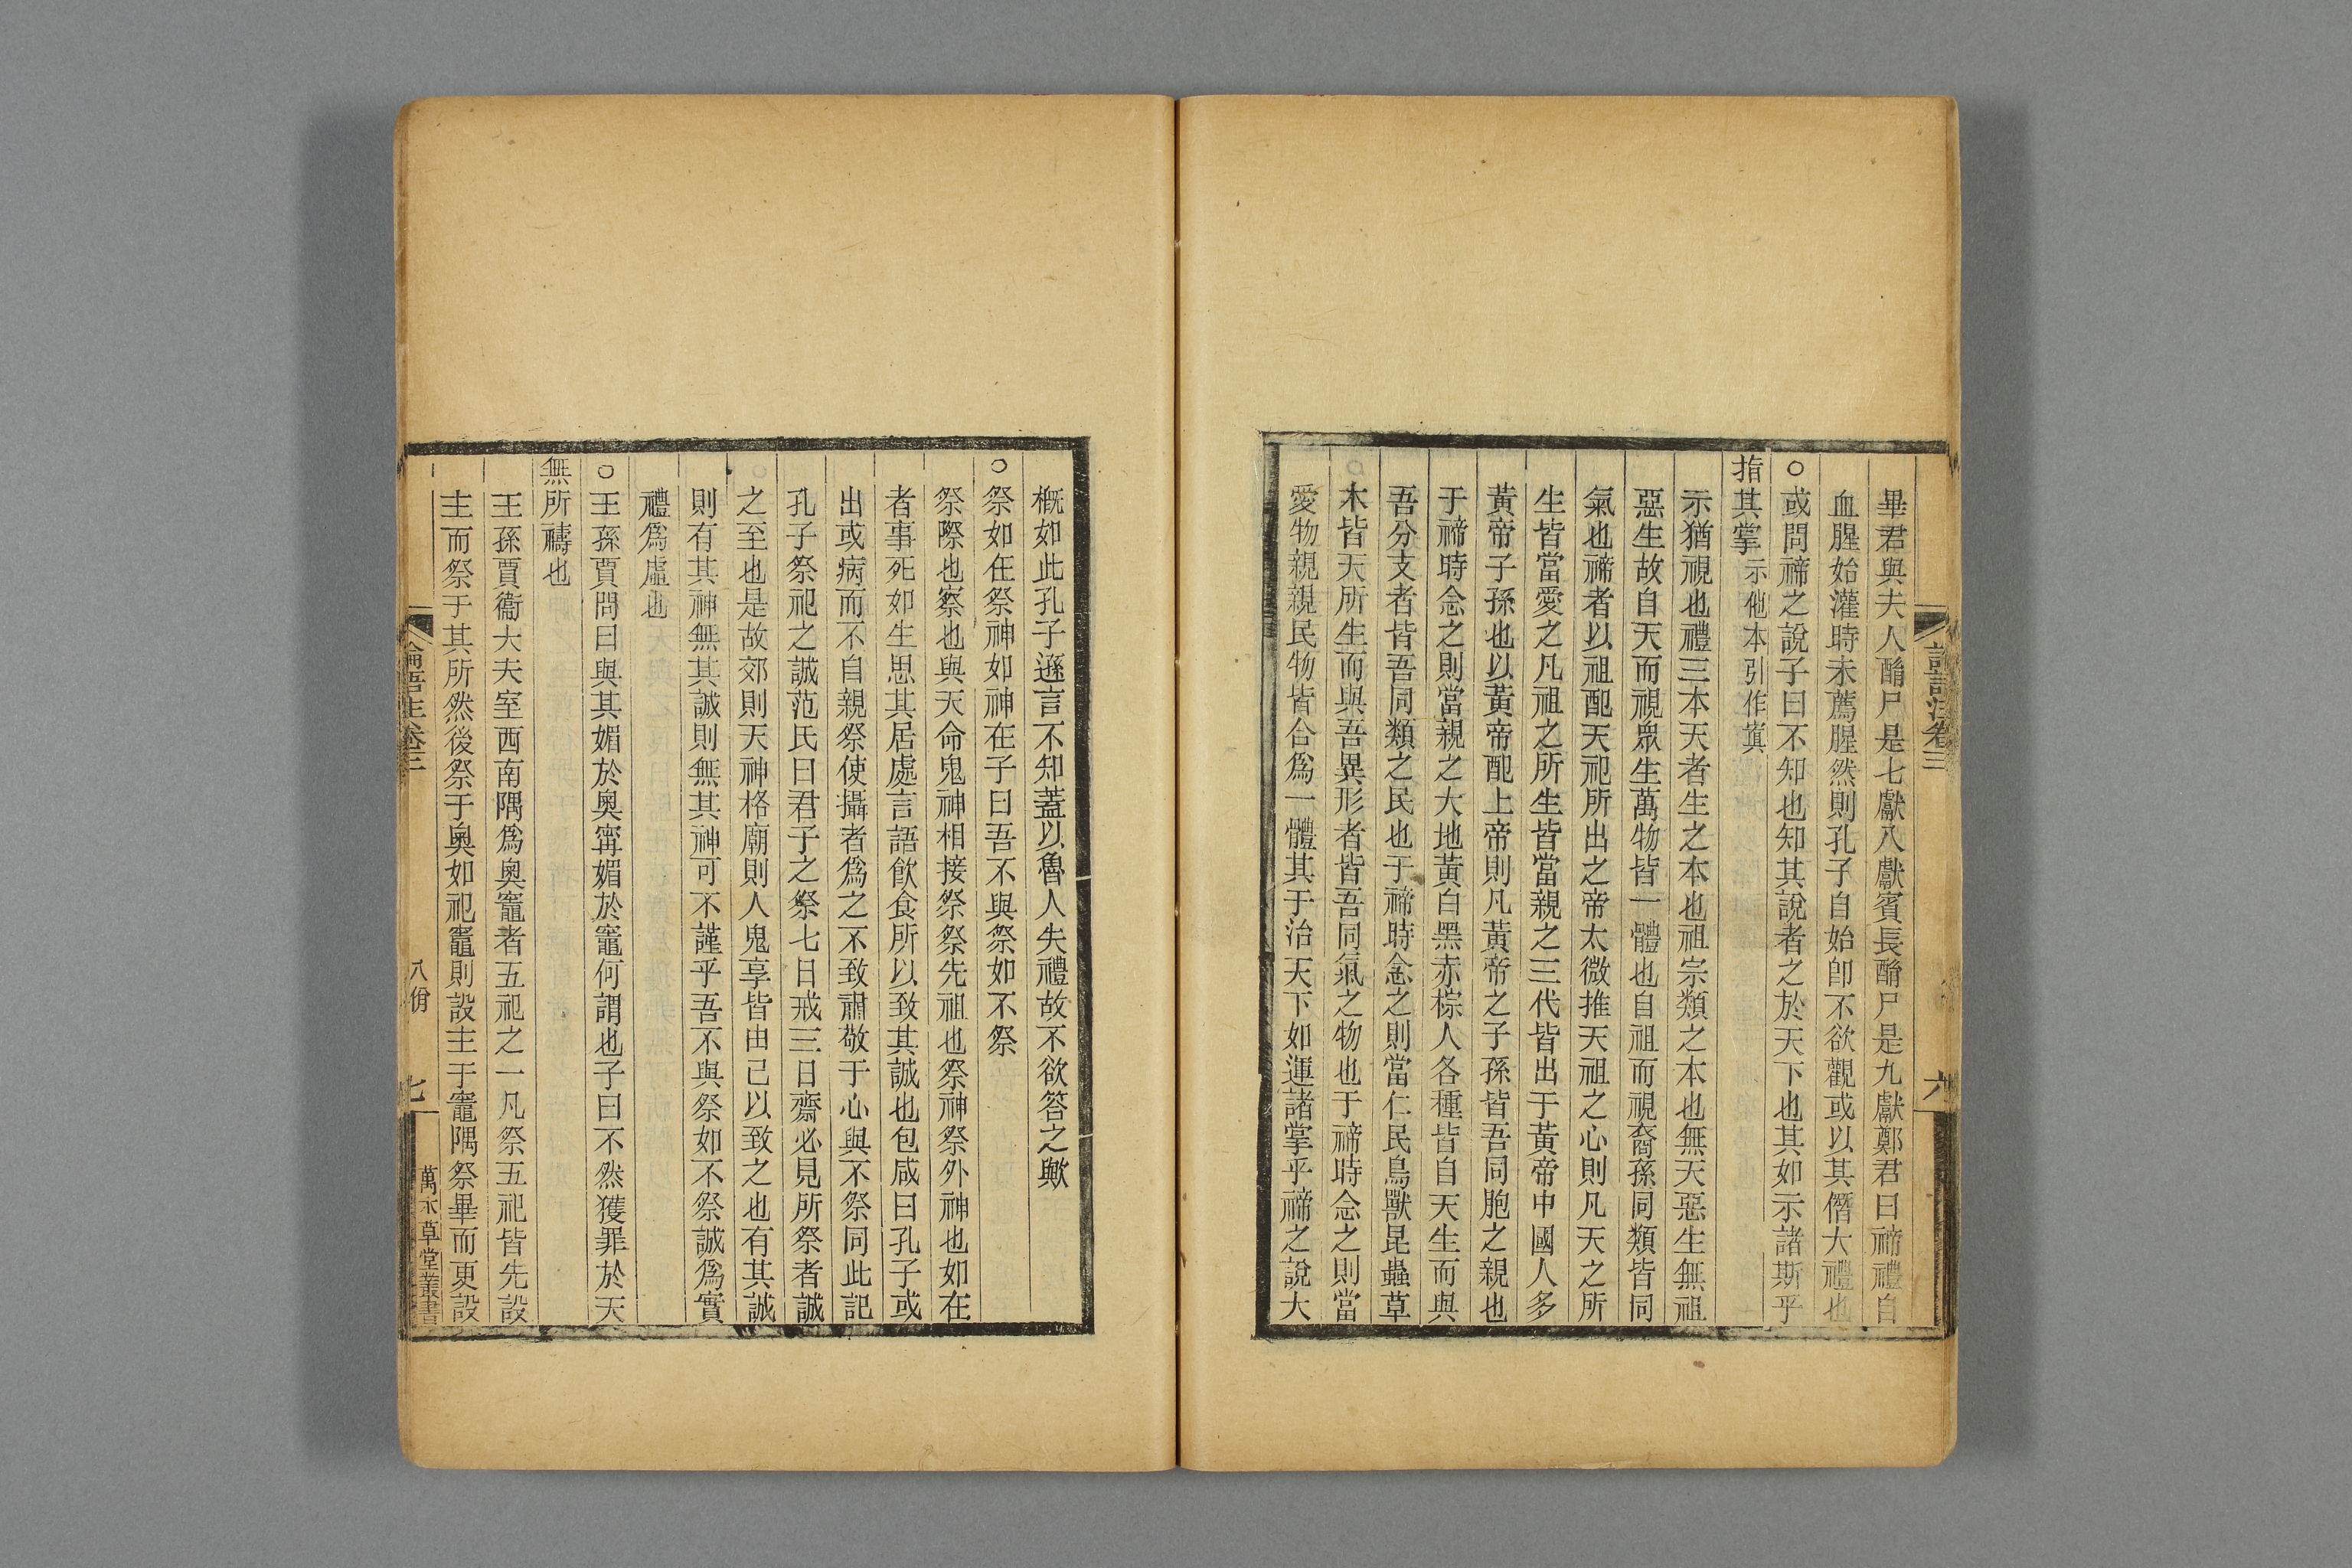 畢君與夫人酳尸是七獻八獻賓長酳尸是九獻鄭君曰禘禮自
血腥始灌時未薦腥然則孔子自始卽不欲觀或以其僭大禮也
○或問禘之說子曰不知也知其說者之於天下也其如示諸斯乎
指其掌示他本引作寘
示猶視也禮三本天者生之本也祖宗類之本也無天惡生無祖
惡生故自天而視眾生萬物皆一體也自祖而視裔孫同類皆同
氣也禘者以祖配天祀所出之帝太微推天祖之心則凡天之所
生皆當愛之凡祖之所生皆當親之三代皆出于黃帝中國人多
黃帝子孫也以黃帝配上帝則凡黃帝之子孫皆吾同胞之親也
于禘時念之則當親之大地黃白黑赤棕人各種皆自天生而與
吾分支者皆吾同類之民也于禘時念之則當仁民鳥獸昆蟲草
木皆天所生而與吾異形者皆吾同氣之物也于禘時念之則當
愛物親親民物皆合爲一體其于治天下如運諸掌乎禘之說大
論語注卷三
六
概如此孔子遜言不知蓋以魯人失禮故不欲答之歟
○祭如在祭神如神在子曰吾不與祭如不祭
祭際也察也與天命鬼神相接祭祭先祖也祭神祭外神也如在
者事死如生思其居處言語飲食所以致其誠也包咸曰孔子或
出或病而不自親祭使攝者爲之不致肅敬于心與不祭同此記
孔子祭祀之誠范氏曰君子之祭七日戒三日齋必見所祭者誠
之至也是故郊則天神格廟則人鬼享皆由己以致之也有其誠
則有其神無其誠則無其神可不謹乎吾不與祭如不祭誠爲實
禮爲虛也
○王孫賈問曰與其媚於奧寗媚於竈何謂也子曰不然獲罪於天
無所禱也
王孫賈衞大夫室西南隅爲奧竈者五祀之一凡祭五祀皆先設
主而祭于其所然後祭于奧如祀竈則設主于竈隅祭畢而更設
論語注卷三
八佾
七
萬木草堂叢書